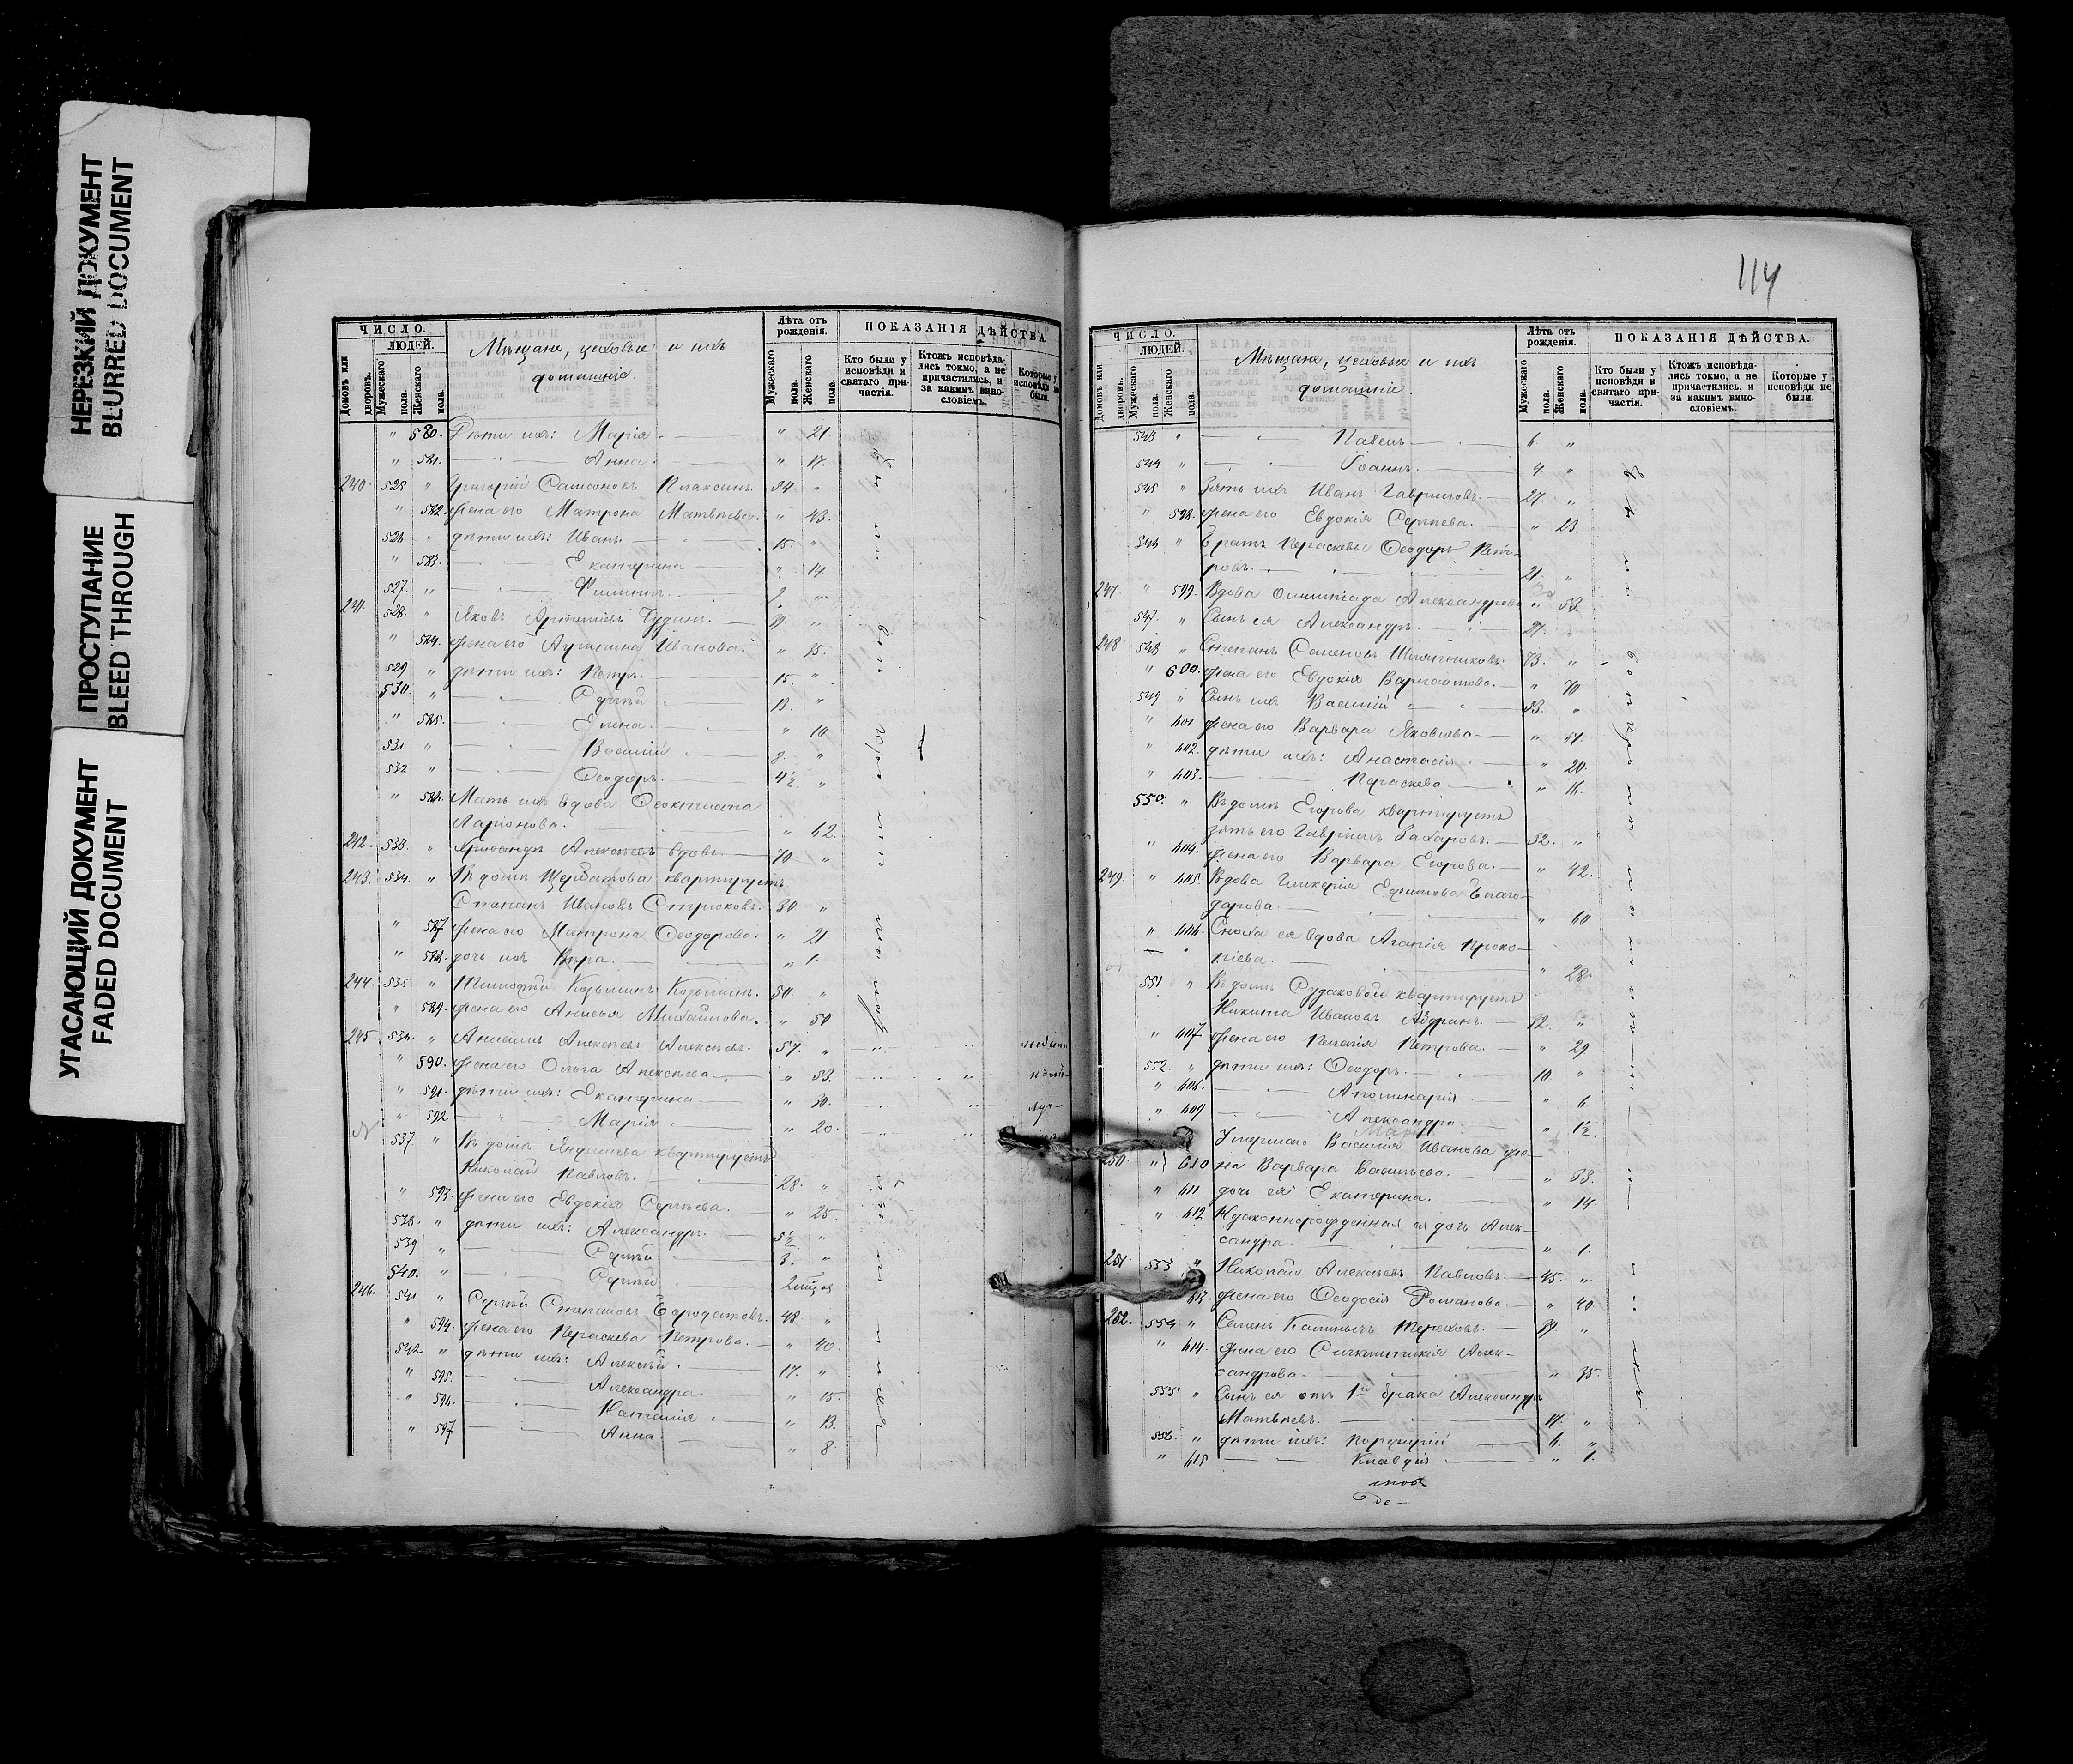 НЕРЕЗКИЙ ДОКУМЕНТ
BLURRED DOCUMENT
ПРОСТУПАНИЕ
BLEED THROUGH
УГАСАЮЩИЙ ДОКУМЕНТ
FADED DOCUMENT
ЧИСЛО.
ЛЮДЕЙ.
Домовъ или дворовъ.
Мужескаго пола.
Женскаго пола.
Мѣщане, цеховые и ихъ
домашніе.
Лѣта отъ рожденія.
Мужескаго пола.
Женскаго пола.
ПОКАЗАНІЯ ДѢЙСТВА.
Кто были у исповѣди и святаго причастія.
Ктожъ исповѣдались токмо, а не причастились, и за какимъ винословіемъ.
Которые у исповѣди не были.
" 580. Дѣти ихъ: Марія " 21
" 581. Анна " 17.
240. 525 " Григорій Самсоновъ Плаксинъ. 54. "
" 582. Жена его Матрона Матвѣева. " 43.
526. " дѣти ихъ: Иванъ 15. "
" 583. Екатерина " 14.
527. " Филиппъ
241. 528. " Яковъ Артемьевъ
" 584. Жена его Иванова. "
529 " дѣти ихъ: Петръ. 15. "
530. " Сергѣй 13. "
" 585. Елена. " 10
531 " Василій 8. "
532 " Ѳеодоръ. 4½ "
" 586. Мать ихъ вдова Ѳеоктиста
Ларіонова. " 62.
242. 533. " Хрисанѳъ Алексѣевъ вдовъ. 70 "
243. 534. " Въ домѣ Щербатова квартируетъ
Степанъ Ивановъ Стрюковъ. 30 "
" 587. Жена его Матрона Ѳеодорова. " 21.
" 588. дочь ихъ Вѣра. " 1.
244. 535. " Тимоѳей Козьминъ Козьминъ. 50. "
" 589. Жена его Анисья Михайлова. " 50
245. 536. " Алексѣевъ Алексѣевъ. 57. "
" 590. Жена его Ольга Алексѣева " 53.
" 591. дѣти ихъ: Екатерина " 30.
" 592 Марія " 20.
537. " Въ домѣ Яндашева квартируетъ
Николай Павловъ. 28. "
" 593. Жена его Евдокія Сергѣева. " 25.
538. " дѣти ихъ: Александръ. 5½ "
539 " Сергѣй 3. "
540. " Сергѣй
246. 541 " Сергѣй Степановъ Бородатовъ. 48 "
" 594. Жена его Параскева Петрова. " 40.
542 " дѣти ихъ: Алексѣй. 17. "
" 595. Александра " 15.
" 596. Наталія " 13.
" 597 Анна. " 8.
114
ЧИСЛО.
ЛЮДЕЙ.
Домовъ или дворовъ.
Мужескаго пола.
Женскаго пола.
Мѣщане, цеховые и ихъ
домашніе.
Лѣта отъ рожденія.
Мужескаго пола.
Женскаго пола.
ПОКАЗАНІЯ ДѢЙСТВА.
Кто были у исповѣди и святаго причастія.
Ктожъ исповѣдались токмо, а не причастились, и за какимъ винословіемъ.
Которые у исповѣди не были.
543 " Павелъ 6 "
544 " Іоаннъ. 4. "
545 " Зять ихъ Иванъ Гавриловъ. 27. "
" 598. Жена его Евдокія Сергѣева. " 23.
546 " Братъ Параскевы Ѳеодоръ Пет-
ровъ. 21. "
247 " 599. Вдова Олимпіада Александрова " 53.
547. " Сынъ ея Александръ. 21. "
248 548 " Степанъ Семеновъ Шляпниковъ. 73. "
" 600. Жена его Евдокія Варламова. " 70
549 " Сынъ ихъ Василій 53. "
" 601 Жена его Варвара Яковлева " 51.
" 602. дѣти ихъ: Анастасія. " 20.
" 603. Параскева " 16.
550. " Въ домѣ Егорова квартируетъ
зять его Гавріилъ Захаровъ. 52. "
" 604. Жена его Варвара Егорова. " 42.
249. " 605. Вдова Гликерія Ефимова Благо-
дарова. " 60
" 606. Сноха ея вдова Агапія Проко-
піева. " 28.
551 " Въ домѣ Судаковой квартируетъ
Никита Ивановъ "
" 607 Жена его Пелагія Петрова. " 29.
552. " дѣти ихъ: Ѳеодоръ. 10. "
" 608. Аполинарія " 6.
" 609 Александра " 1½.
Умершаго Василія Иванова же-
250. " 610 на Варвара Васильева. " 38.
" 611 дочь ея Екатерина. " 14.
" 612 Незаконнорожденная ея дочь Алек-
сандра. " 1.
251 553 " Николай Алексѣевъ Павловъ. 45. "
613. Жена его Ѳеодосія Романова. " 40.
252. 554 " Семенъ Калинычъ Тереховъ. 39. "
" 614. Жена его Синклитикія Алек-
сандрова. " 35.
555 " Сынъ ея отъ 1го брака Александръ
Матвѣевъ. 17. "
556. " дѣти ихъ: Порфирій 6. "
" 615 Клавдія " 1.